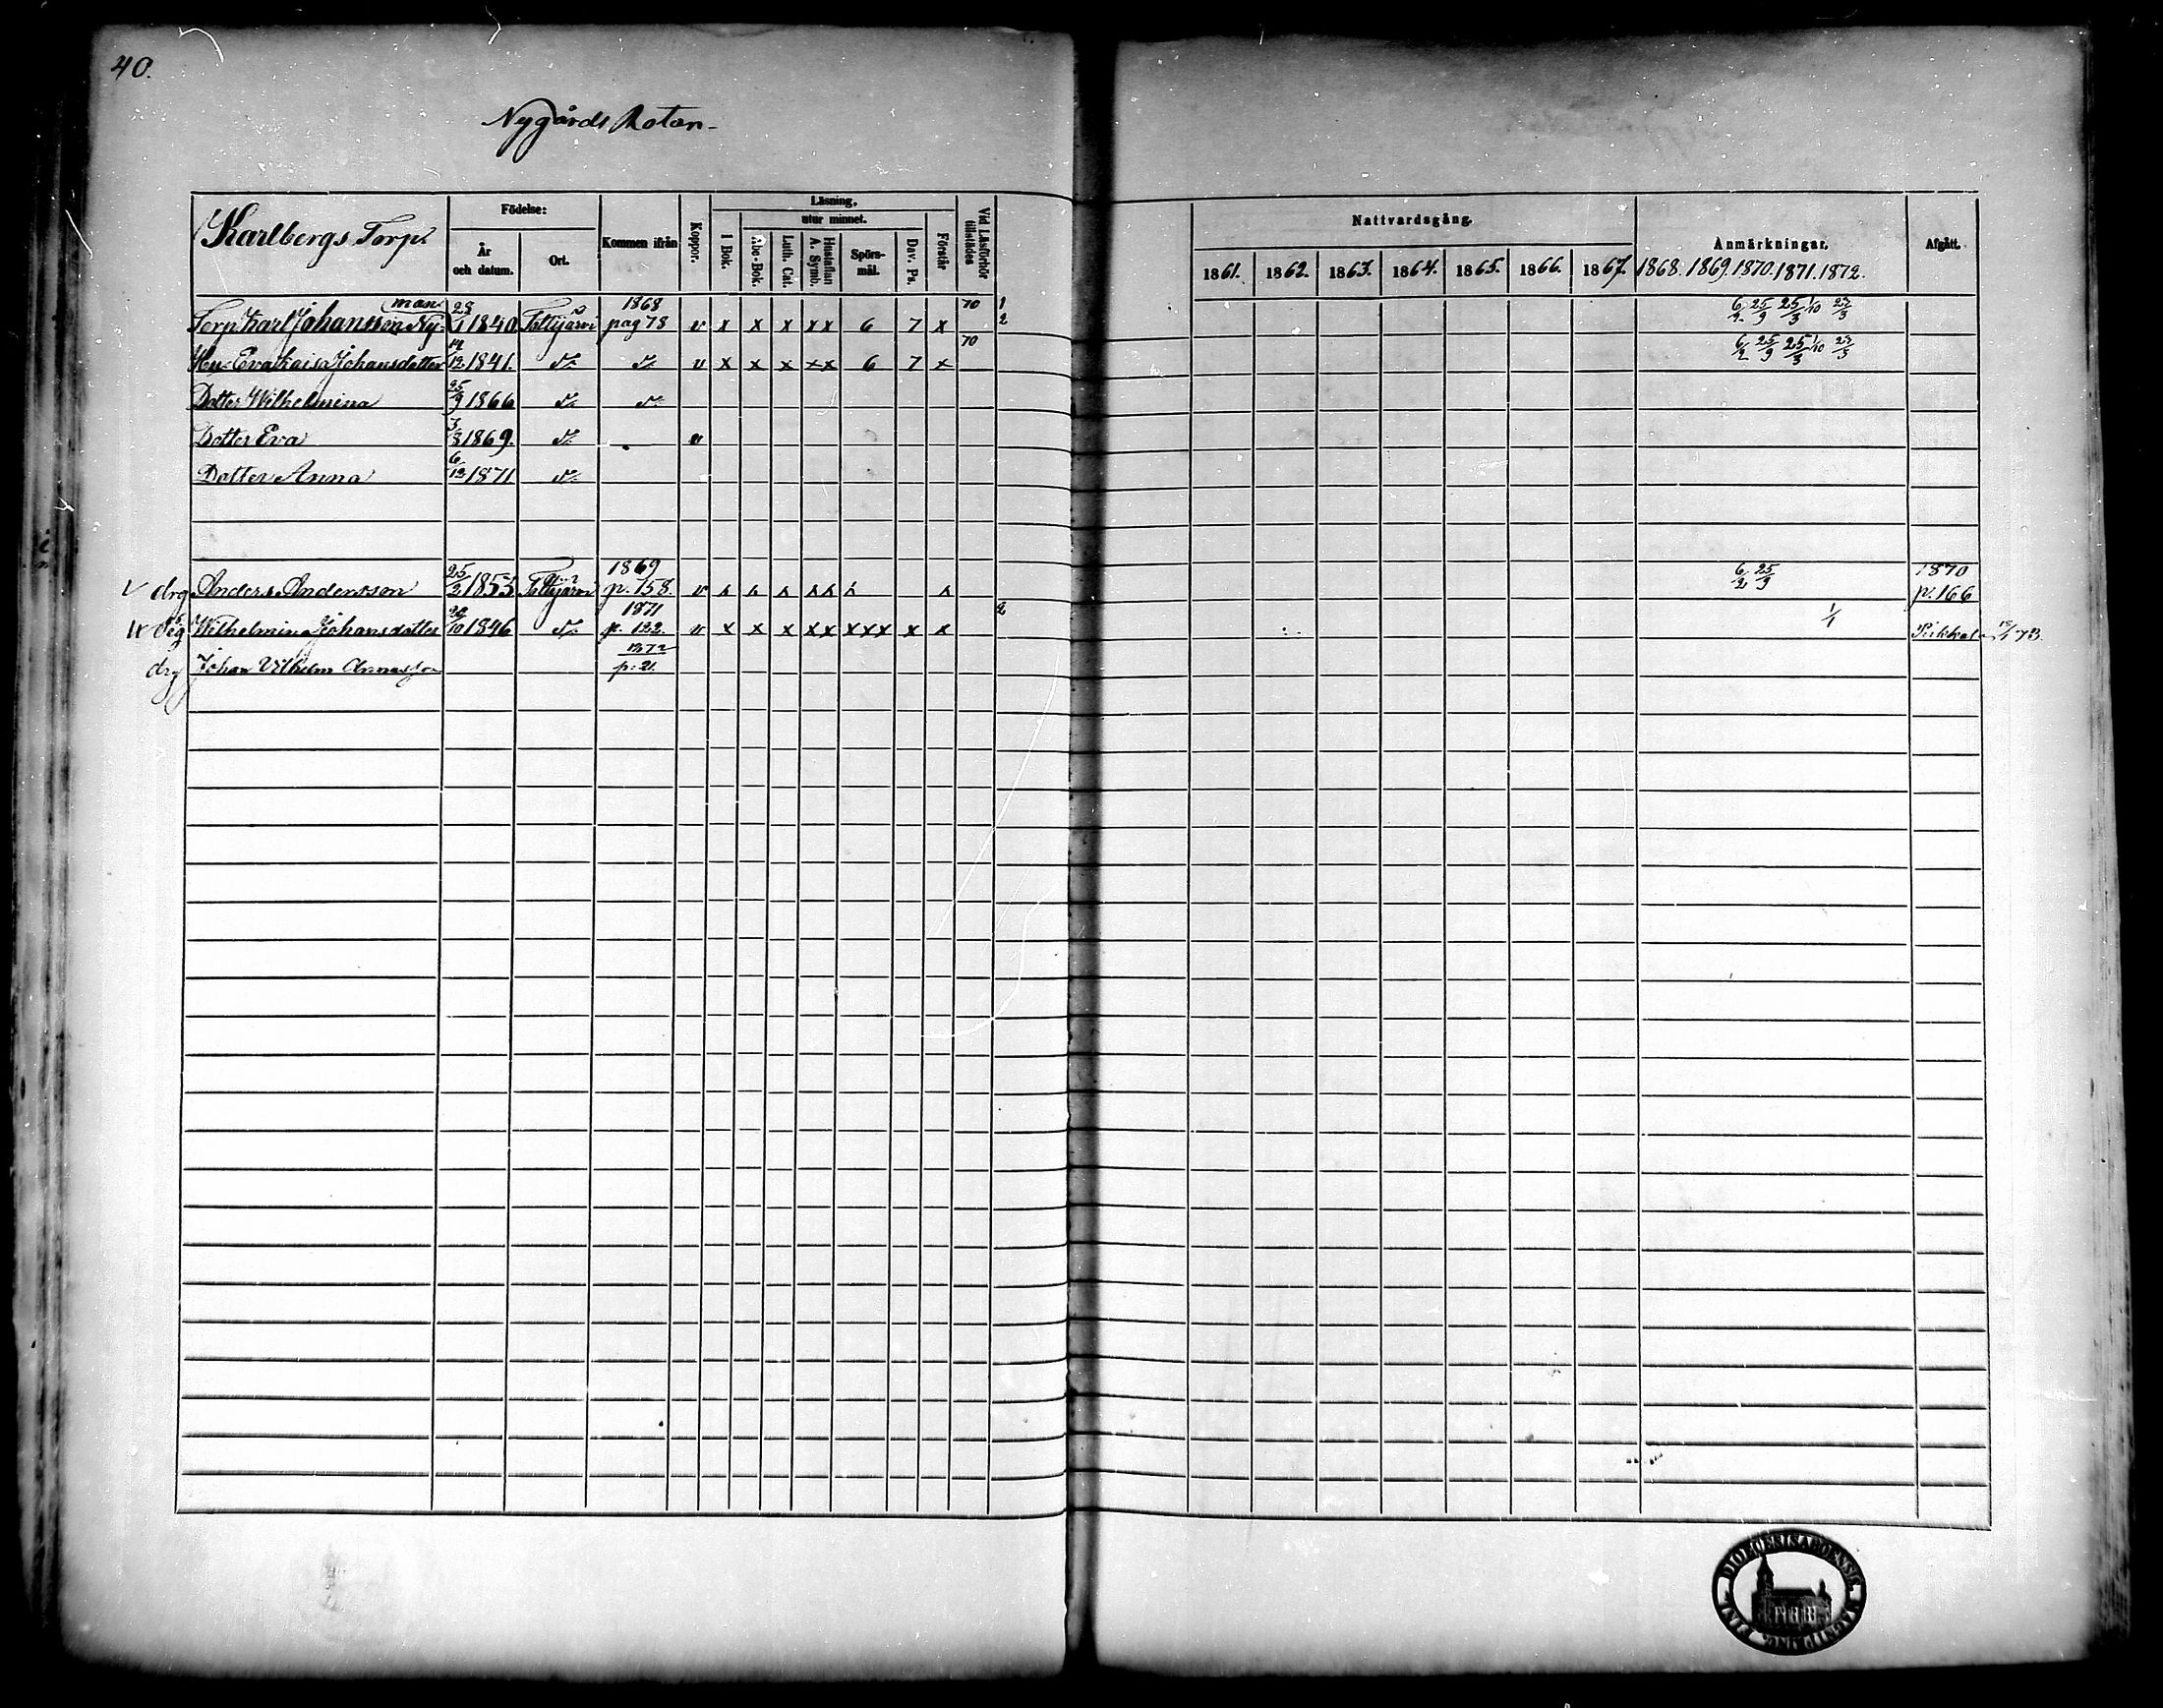 40.
Nygårds Rotan.
Karlbergs Torp.
Födelse:
År och datum.
Ort.
Kommen ifrån
Koppor.
Läsning,
utur minnet.
I Bok.
Abc-Bok.
Luth. Cat.
Hustaflan A. Symb.
Spörs-mål.
Dav. Ps.
Förstår
Vid Läsförhör tillstädes
Nattvardsgång.
1861. 1862. 1863. 1864. 1865. 1866. 1867.
Anmärkningar.
1868. 1869. 1870. 1871. 1872.
Afgått.
man
Torp. Karl Johansson Ny- 28/1 1840 Tottijärvi 1868 pag 78 v x x x x x 6 7 x 70 1 2 6/2 25/9 25/3 1/10 23/3
Hu. Eva Kaisa Johansdotter 14/12 1841. d:o d:o v x x x x x 6 7 x 70 6/2 25/9 25/3 1/10 23/3
Dotter Wilhelmina 25/9 1866 d:o d:o
Dotter Eva 3/8 1869. d:o v
Dotter Anna 6/12 1871 d:o
drg Anders Andersson 25/2 1853 Tottijärvi 1869 p. 158. v 6/2 25/9 1870 p. 166
Wilhelmina Johansdotter 1846 d:o 1871 p. 122. v x x x x x x x x x x 2 1/1 Pirkkala 73.
drg Johan Vilhelm 1872 p: 21.
DIOECESIS ABOENSIS